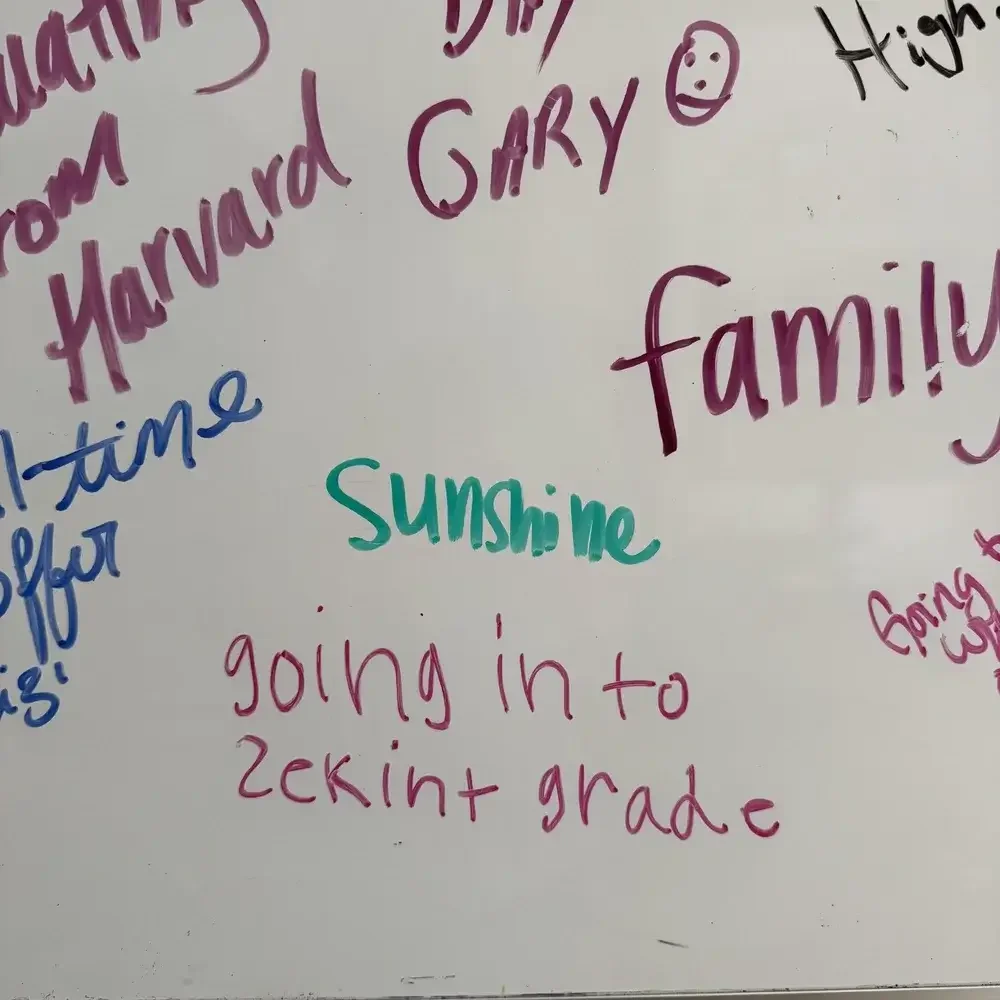 uating
rom
Harvard
DAY
GARY
High
family
l-time
offer
Sunshine
going in to
zekint grade
Going